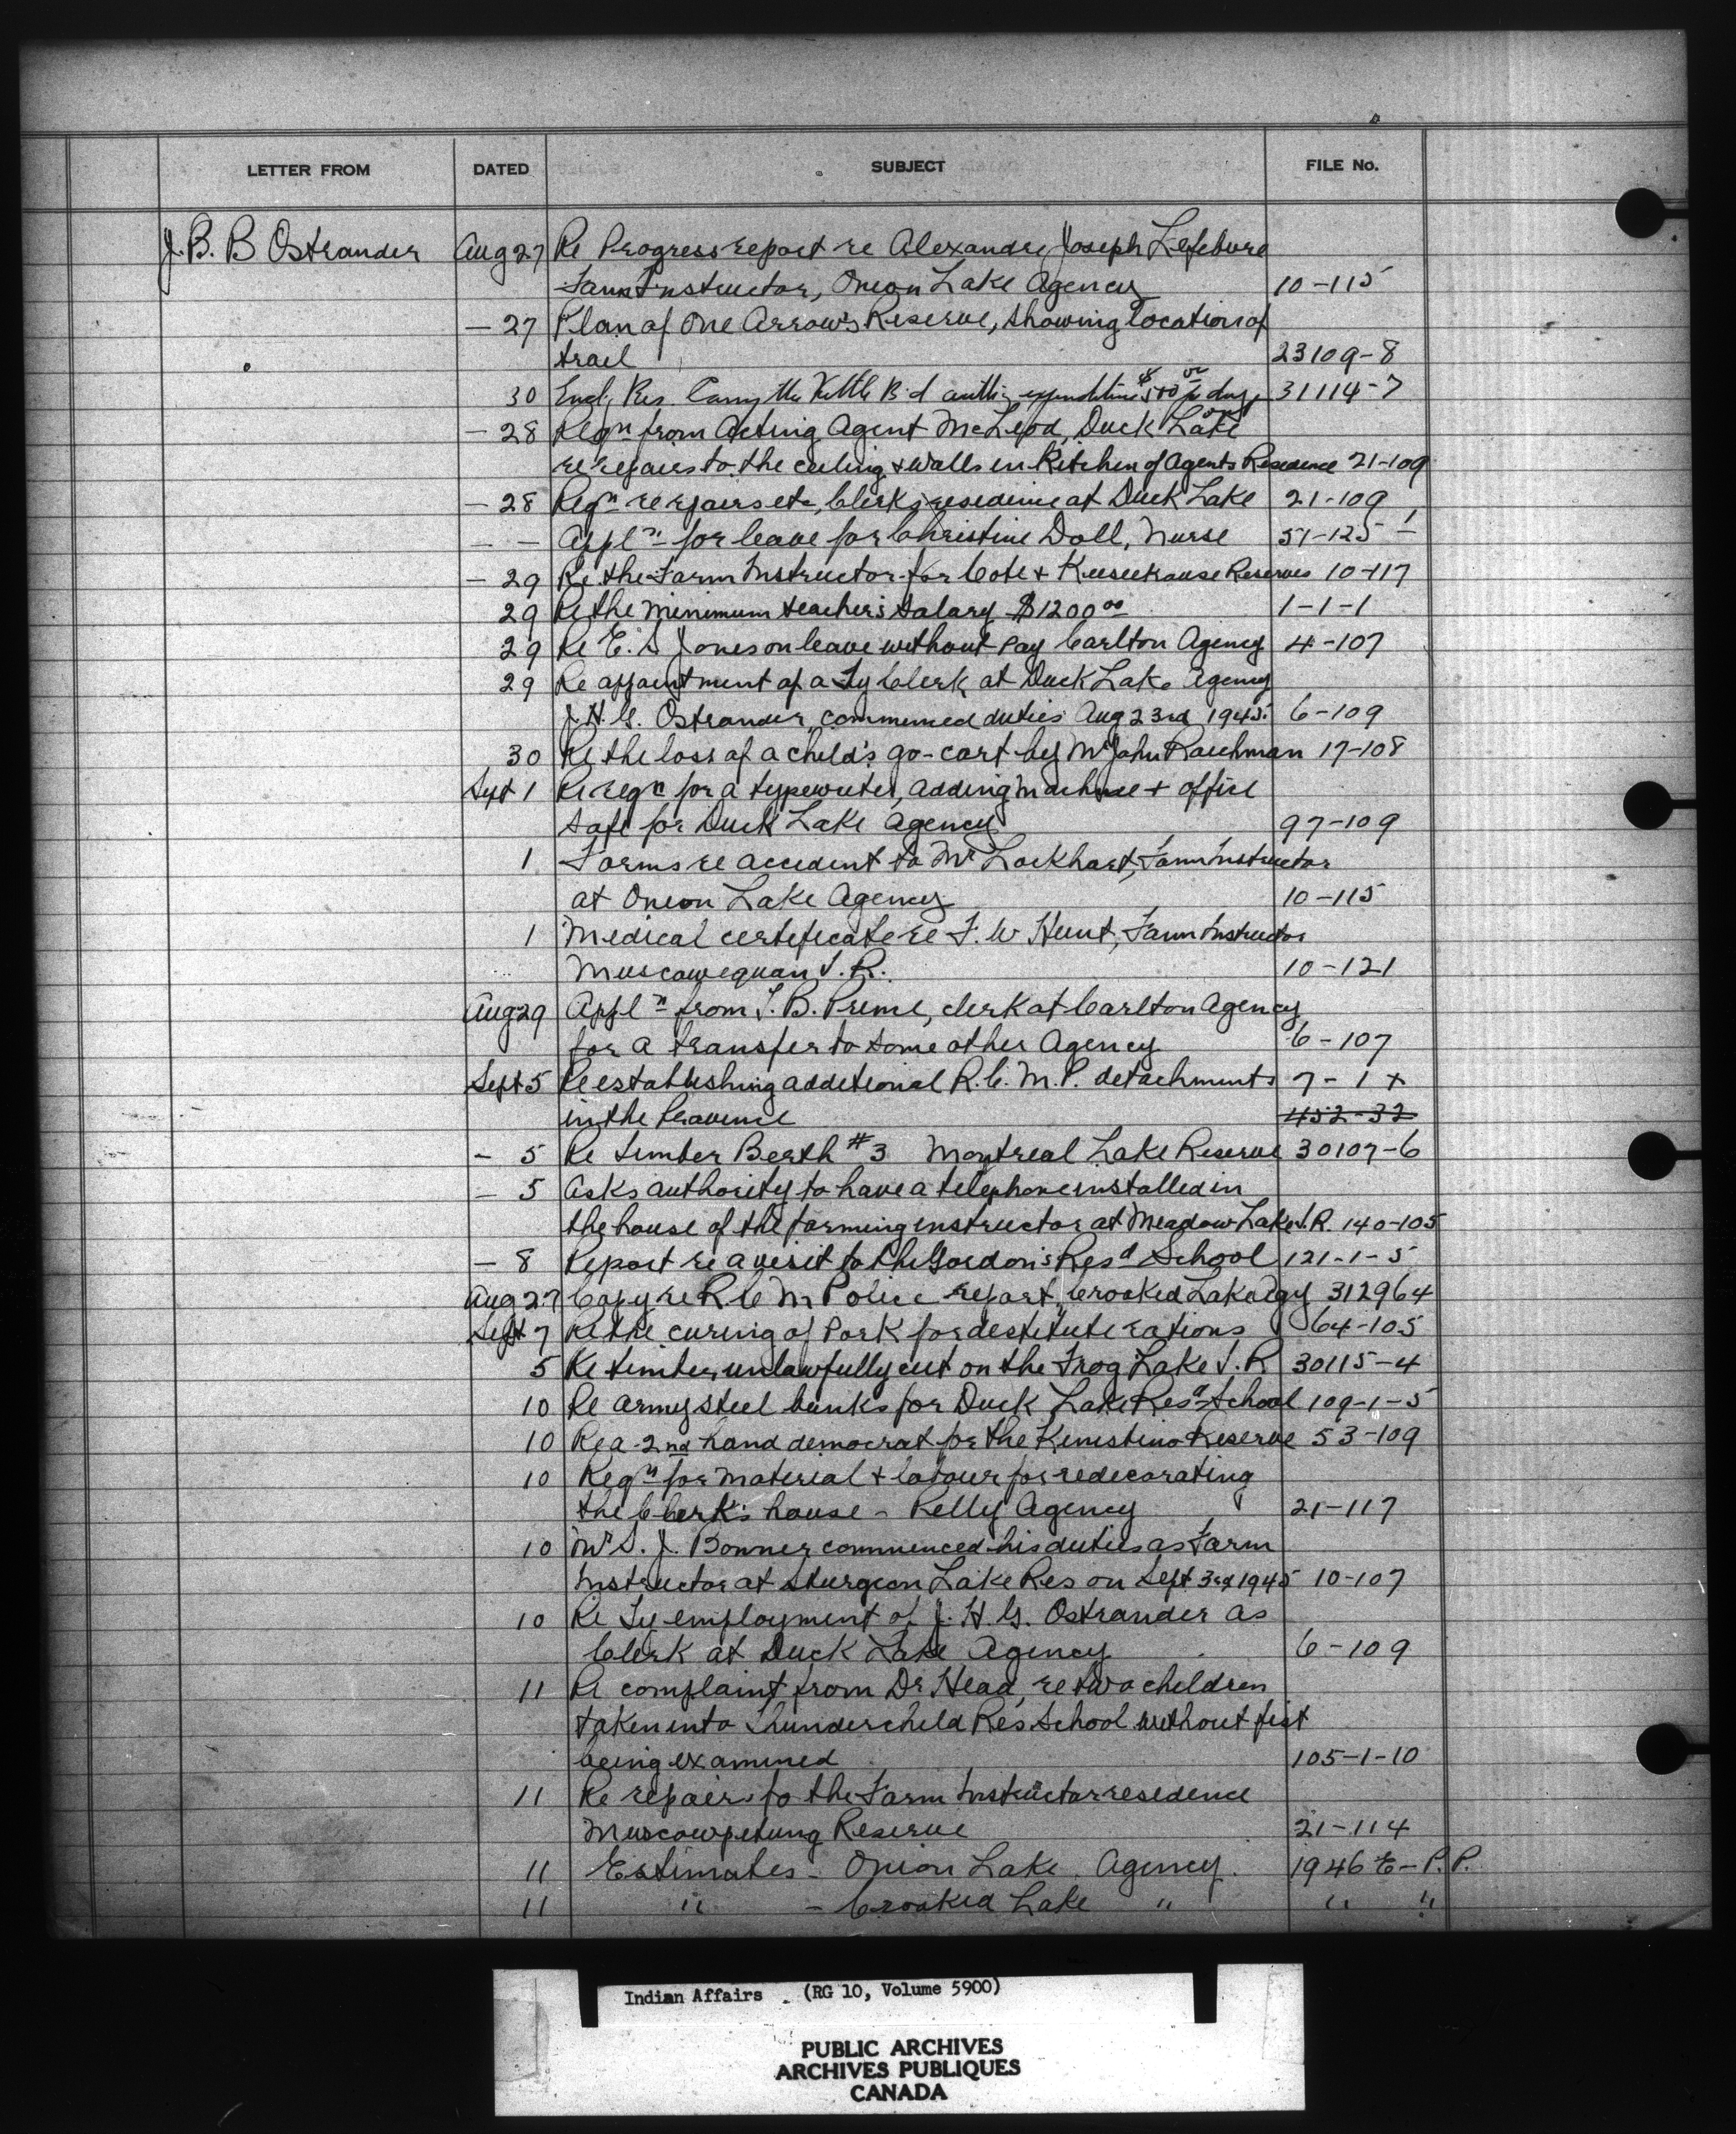 LETTER FROM DATED SUBJECT FILE No.
J. B. B Ostrander Aug 27 Re Progress report re Alexandre Joseph Lefebvre
Farm Instructor, Onion Lake Agency 10-115
- 27 Plan of One Arrow's Reserve, showing location of
trail 23109-8
30 Encl. Res. Carry the Kettle Bd auth'g expenditure $500 31114-7
- 28 Reqn from Acting Agent McLeod, Duck Lake
re repairs to the ceiling + walls in Kitchen of Agents Residence 21-109
- 28 Reqn re repairs etc, Clerk's residence at Duck Lake 21-109
- - Appln for leave for Christine Doll, Nurse 51-125-1
- 29 Re the Farm Instructor for Cote + Keeseekouse Reserves 10-117
29 Re the minimum teacher's salary $1200 00 1-1-1
29 Re E. S Jones on leave without pay Carlton Agency 4-107
29 Re appointment of a Ty Clerk at Duck Lake Agency
J. H. G. Ostrander, commenced duties Aug 23rd 1945. 6-109
30 Re the loss of a child's go-cart by Mr John Raichman 17-108
Sept 1 Re reqn for a typewriter, adding machine + office
safe for Duck Lake Agency 97-109
1 Forms re accident to Mr Lockhart, Farm Instructor
at Onion Lake Agency 10-115
1 Medical certificate re F. W Hunt, Farm Instructor
Muscowequan I. R. 10-121
Aug 29 Appln from T. B. Prime, clerk at Carlton Agency
for a transfer to some other Agency 6-107
Sept 5 Re establishing additional R. C. M. P. detachments 7-1 +
in the Province 452-32
- 5 Re Timber Berth #3 Montreal Lake Reserve 30107-6
- 5 Asks authority to have a telephone installed in
the house of the farming instructor at Meadow Lake I. R. 140-105
- 8 Report re a visit to the Gordon's Resd School 121-1-5
Aug 27 Copy re R C M Police report, Crooked Lake Agy 312964
Sept 7 Re the curing of Pork for destitute rations 64-105
5 Re timber unlawfully cut on the Frog Lake I. R 30115-4
10 Re army steel bunks for Duck Lake Resd School 109-1-5
10 Re a 2nd hand democrat for the Kinistino Reserve 53-109
10 Reqn for material + labour for redecorating
the Clerk's house - Pelly Agency 21-117
10 Mr S. J. Bonner commenced his duties as Farm
Instructor at Sturgeon Lake Res on Sept 3rd 1945 10-107
10 Re Ty employment of J. H. G. Ostrander as
Clerk at Duck Lake Agency 6-109
11 Re complaint from Dr Head, re two children
taken into Thunderchild Res School without fist
being examined 105-1-10
11 Re repairs to the Farm Instructor residence
Muscowpetung Reserve 21-114
11 Estimates - Onion Lake Agency. 1946 E-P.P.
11 " - Crooked Lake " " "
Indian Affairs . (RG 10, Volume 5900)
PUBLIC ARCHIVES
ARCHIVES PUBLIQUES
CANADA